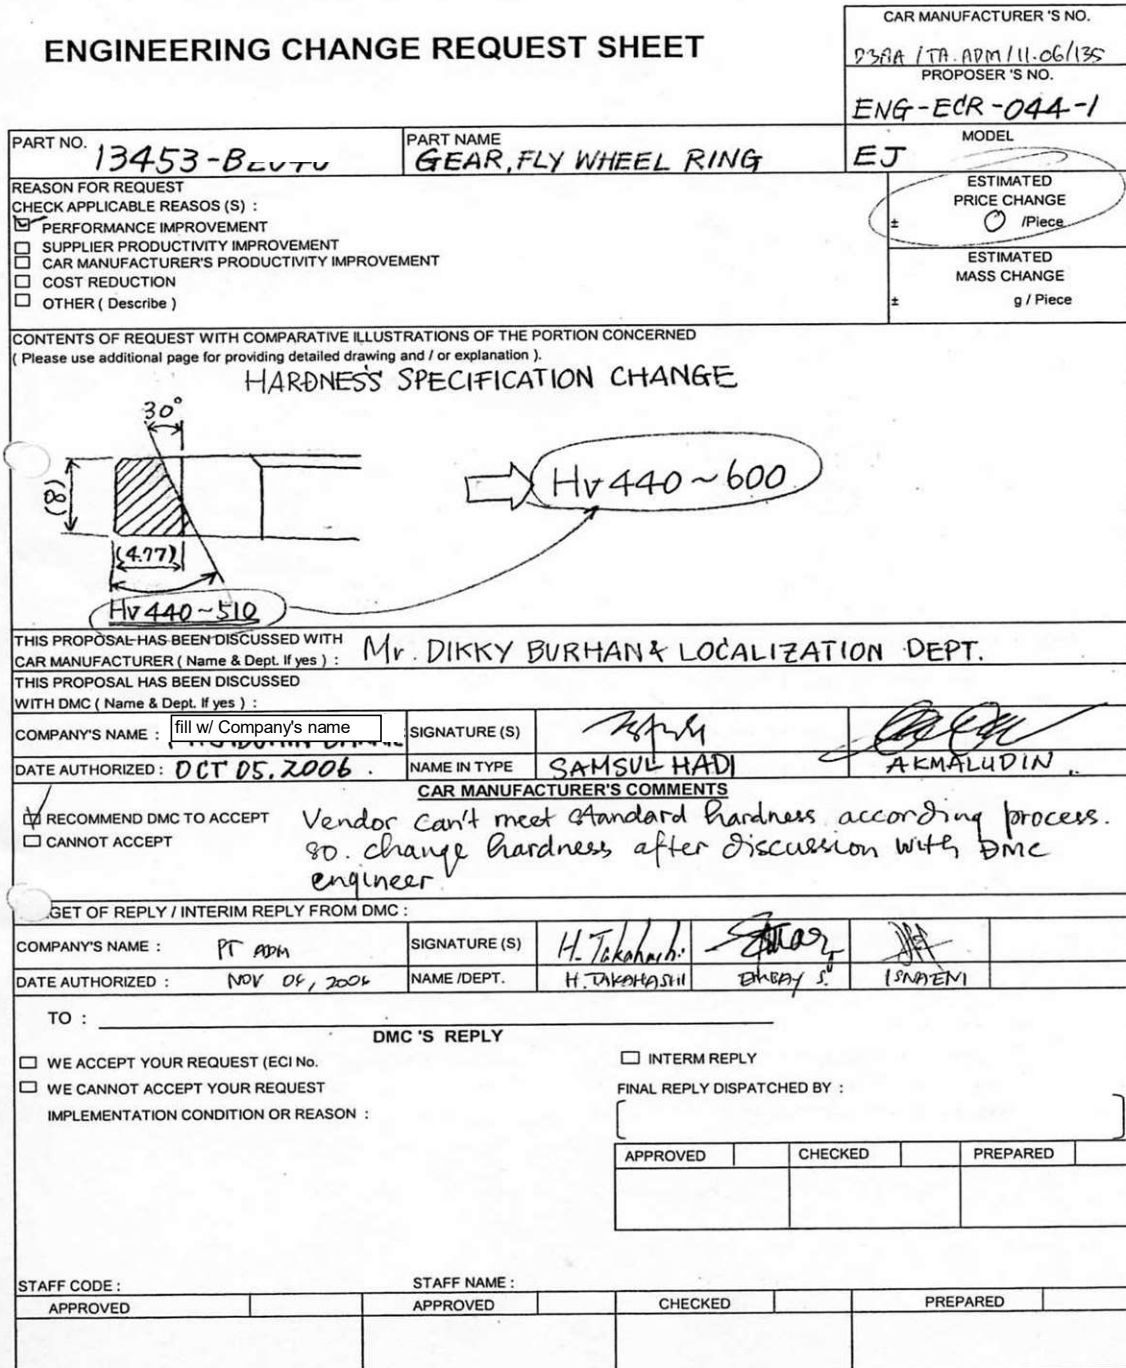 ENGINEERING CHANGE REQUEST SHEET
CAR MANUFACTURER 'S NO.
/TA.ADM/11.06/135
PROPOSER 'S NO.
ENG-ECR-044-1
PART NO. 13453-
PART NAME
GEAR, FLY WHEEL RING
MODEL
EJ
REASON FOR REQUEST
CHECK APPLICABLE REASOS (S) :
PERFORMANCE IMPROVEMENT
SUPPLIER PRODUCTIVITY IMPROVEMENT
CAR MANUFACTURER'S PRODUCTIVITY IMPROVEMENT
COST REDUCTION
OTHER ( Describe )
ESTIMATED
PRICE CHANGE
± 0 /Piece
ESTIMATED
MASS CHANGE
± g / Piece
CONTENTS OF REQUEST WITH COMPARATIVE ILLUSTRATIONS OF THE PORTION CONCERNED
( Please use additional page for providing detailed drawing and / or explanation ).
HARDNESS SPECIFICATION CHANGE
30°
(8)
(4.77)
Hv 440~510
Hv 440~600
THIS PROPOSAL HAS BEEN DISCUSSED WITH
CAR MANUFACTURER ( Name & Dept. If yes ) : Mr. DIKKY BURHAN & LOCALIZATION DEPT.
THIS PROPOSAL HAS BEEN DISCUSSED
WITH DMC ( Name & Dept. If yes ) :
COMPANY'S NAME : fill w/ Company's name
SIGNATURE (S)
DATE AUTHORIZED : OCT 05.2006.
NAME IN TYPE SAMSUL HADI AKMALUDIN
CAR MANUFACTURER'S COMMENTS
RECOMMEND DMC TO ACCEPT
CANNOT ACCEPT
Vendor can't meet standard hardness according process.
so. change hardness after discussion with DMC
engineer
GET OF REPLY / INTERIM REPLY FROM DMC :
COMPANY'S NAME : PT ADM
SIGNATURE (S) H. Takahashi
DATE AUTHORIZED : NOV 06, 2006
NAME /DEPT. H. TAKAHASHI EMBAY S. ISNAENI
TO :
DMC 'S REPLY
WE ACCEPT YOUR REQUEST (ECI No.
WE CANNOT ACCEPT YOUR REQUEST
IMPLEMENTATION CONDITION OR REASON :
INTERM REPLY
FINAL REPLY DISPATCHED BY :
APPROVED CHECKED PREPARED
STAFF CODE : STAFF NAME :
APPROVED APPROVED CHECKED PREPARED